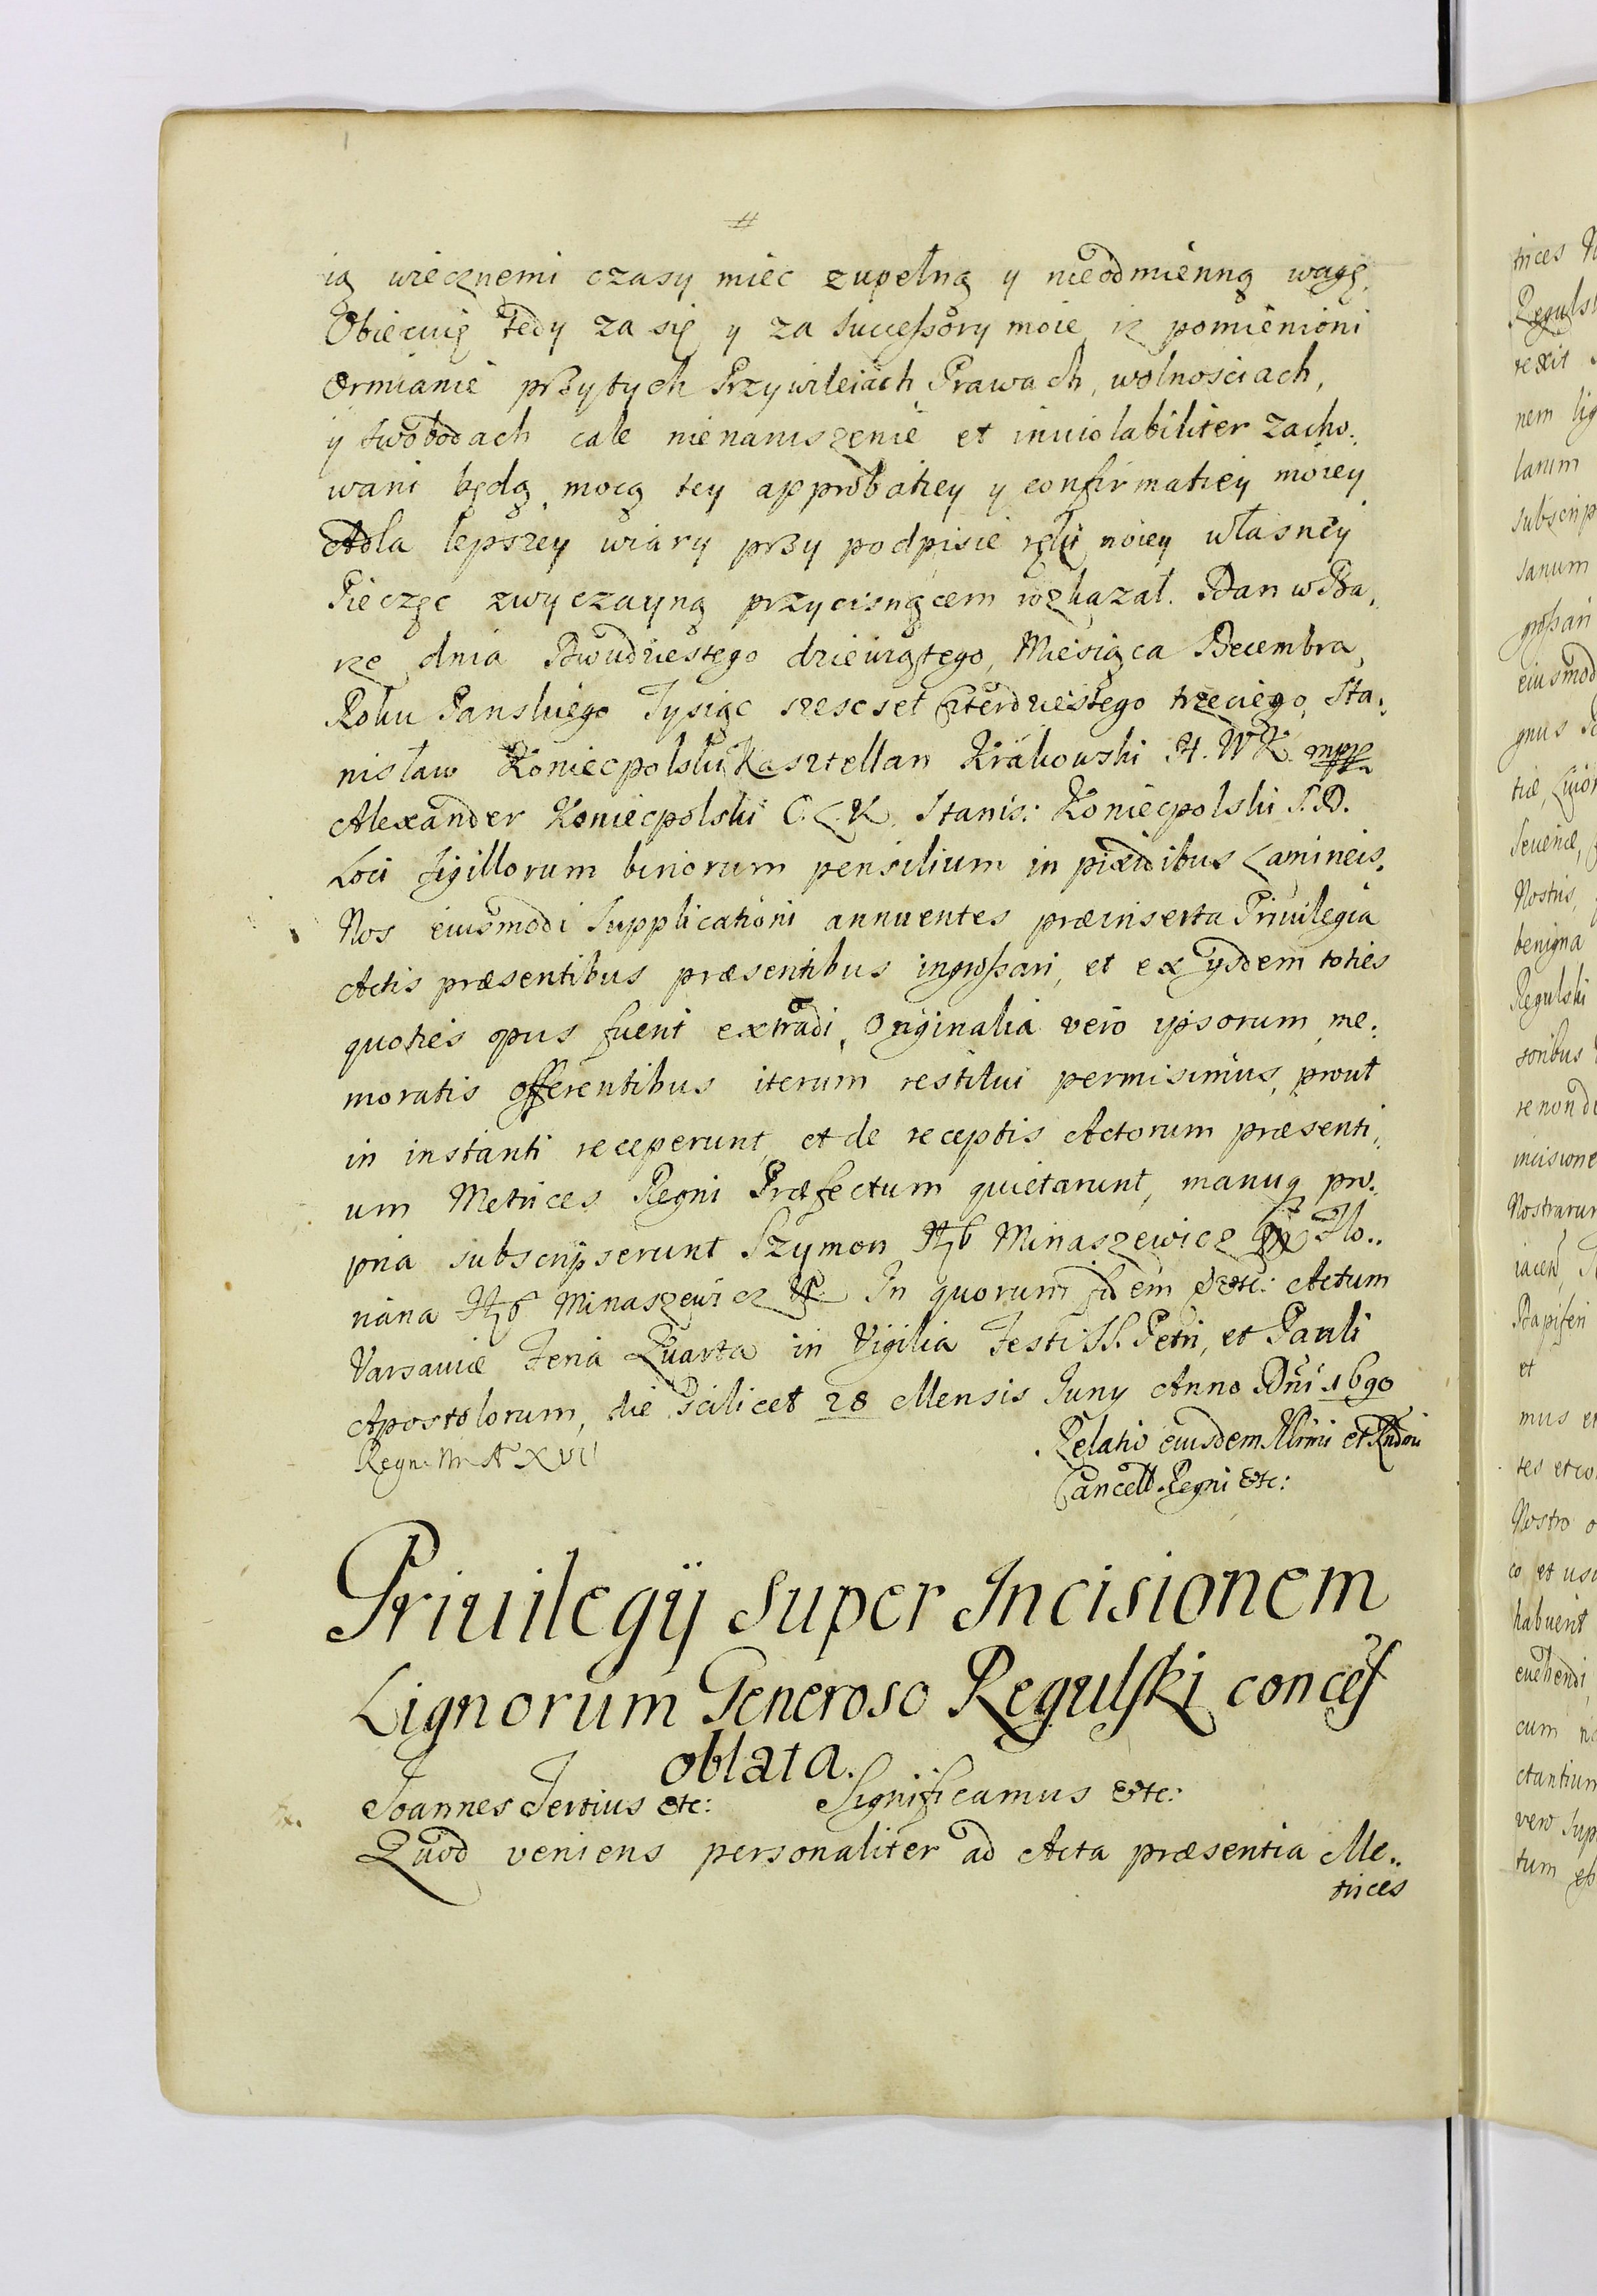 ią wiecznemi czasy miec zupełną y nieodmienną wagę.
Obiecuię tedy za się y za Successory moie iz pomienioni
Ormianie przy tych Przywileiach Prawach, wolnosciach,
y swobodach cale nienaruszenie et inuiolabiliter zacho:
wani będą mocą tey approbatiey y confirmatiey moiey
Adla lepszey wiary przy podpisie ręki moiey własney
Pieczęc zwyczayną przycisnącem rozkazał. Dan w Ba:
rze dnia Dwudziestego dziewiątego, Miesiąca Decembra,
Roku Panskiego Tysiąc szescset Czterdziestego trzeciego, Sta:
nisław Koniecpolski Kasztellan Krakowski H. W K. mpp
Alexander Koniecpolski C. L. K. Stanis: Koniecpolski S. D.
Loci Sigillorum binorum pensilium in pixidibus Lamineis.
Nos eiusmodi Supplicationi annuentes præinserta Priuilegia
Actis præsentibus præsentibus ingrossari, et ex ysdem toties
quoties opus fuerit extradi, Originalia vero ipsorum me:
moratis offerentibus iterum restitui permisimus, prout
in instanti receperunt, et de receptis Actorum præsenti:
um Metrices Regni Præfectum quietarunt, manuq pro:
pria subscripserunt Szymon Minaszewicz Flo..
riana Minaszewicz In quorum fidem etc: Actum
Varsauiæ Feria Quarta in Vigilia Festi SS. Petri, et Pauli
Apostolorum, die Scilicet 28 Mensis Juny Anno Dni 1690
Regn. Nri A XVII
Relatio eiusdem Illrmi et Rndmi
Cancell. Regni etc:
Priuilegij super Incisionem
Lignorum Generoso Regulski concess
oblata.
Joannes Tertius etc: Significamus etc:
Quod veniens personaliter ad Acta præsentia Me..
trices